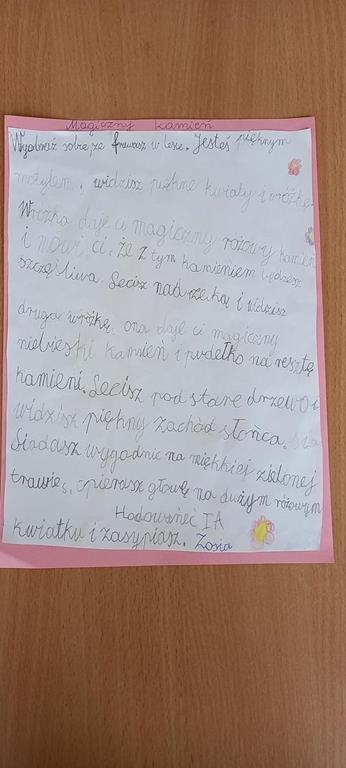 Magiczny kamień
Wyobraź sobie, że fruwasz w lesie. Jesteś pięknym
motylem. widzisz piękne kwiaty i wróżkę.
Wróżka daje ci magiczny różowy kamień
i mówi ci, że z tym kamieniem będziesz
szczęśliwa. Lecisz nad rzeką i widzisz
drugą wróżkę, ona daje ci magiczny
niebieski kamień i pudełko na resztę
kamieni. Lecisz pod stare drzewo i
widzisz piękny zachód słońca.
Siadasz wygodnie na miękkiej zielonej
trawie, opierasz głowę na dużym różowym
Hodowaniec IA
kwiatku i zasypiasz. Zosia